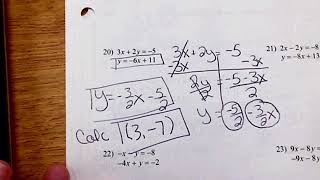 20) 3x + 2y = -5
y = -6x + 11
3x + 2y = -5
-3x -3x
2y/2 = -5-3x/2
y = -5/2 -3/2x
y = -3/2x -5/2
Calc (3, -7)
21) 2x - 2y = -8
y = -8x + 13
22) -x - y = -8
-4x + y = -2
23) 9x - 8y =
-9x - 8y